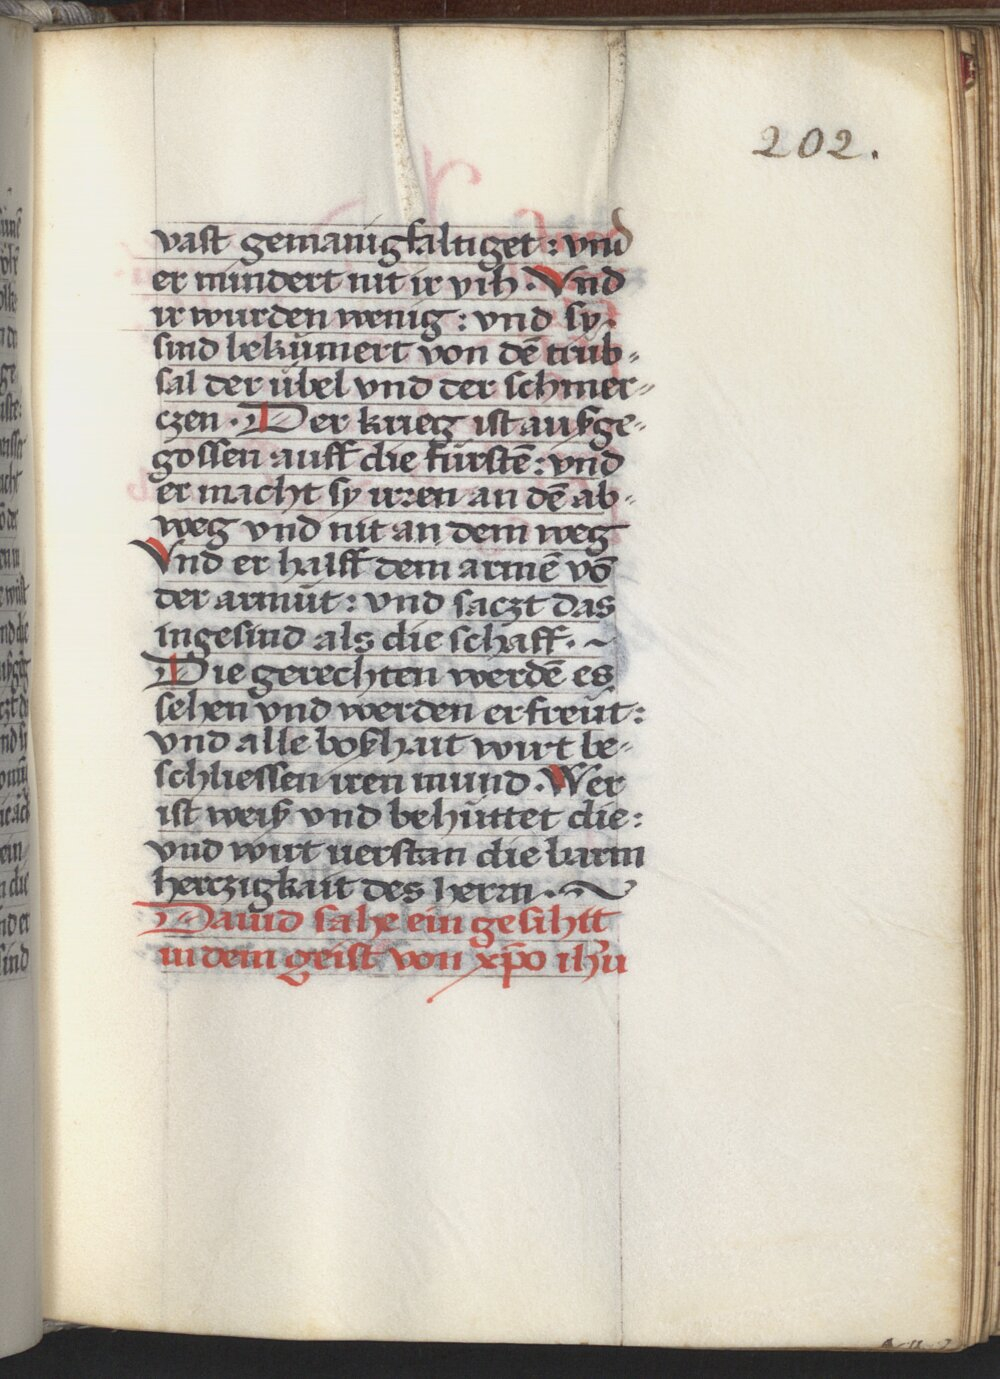 202.
vast gemanigfaltiget : vnd
er mindert nit ir vih. Vnd
ir wurden wenig : vnd sy
sind bekümert von dē trüb-
sal der übel vnd der schmer-
czen. Der krieg ist außge-
gossen auff die fürstē : vnd
er macht sy irren an dē ab-
weg vnd nit an dem weg
Vnd er halff dem armē vō
der armüt : vnd saczt das
ingesind als die schaff. ~
Die gerechten werdē es
sehen vnd werden erfreüt :
vnd alle boßhait wirt be-
schliessen iren mund. Wer
ist weiß vnd behüttet die :
vnd wirt uerstan die barm
herczigkait des herrn. ~
Dauid sahe ein gesihtt
in dem geist von xp̄o ihū